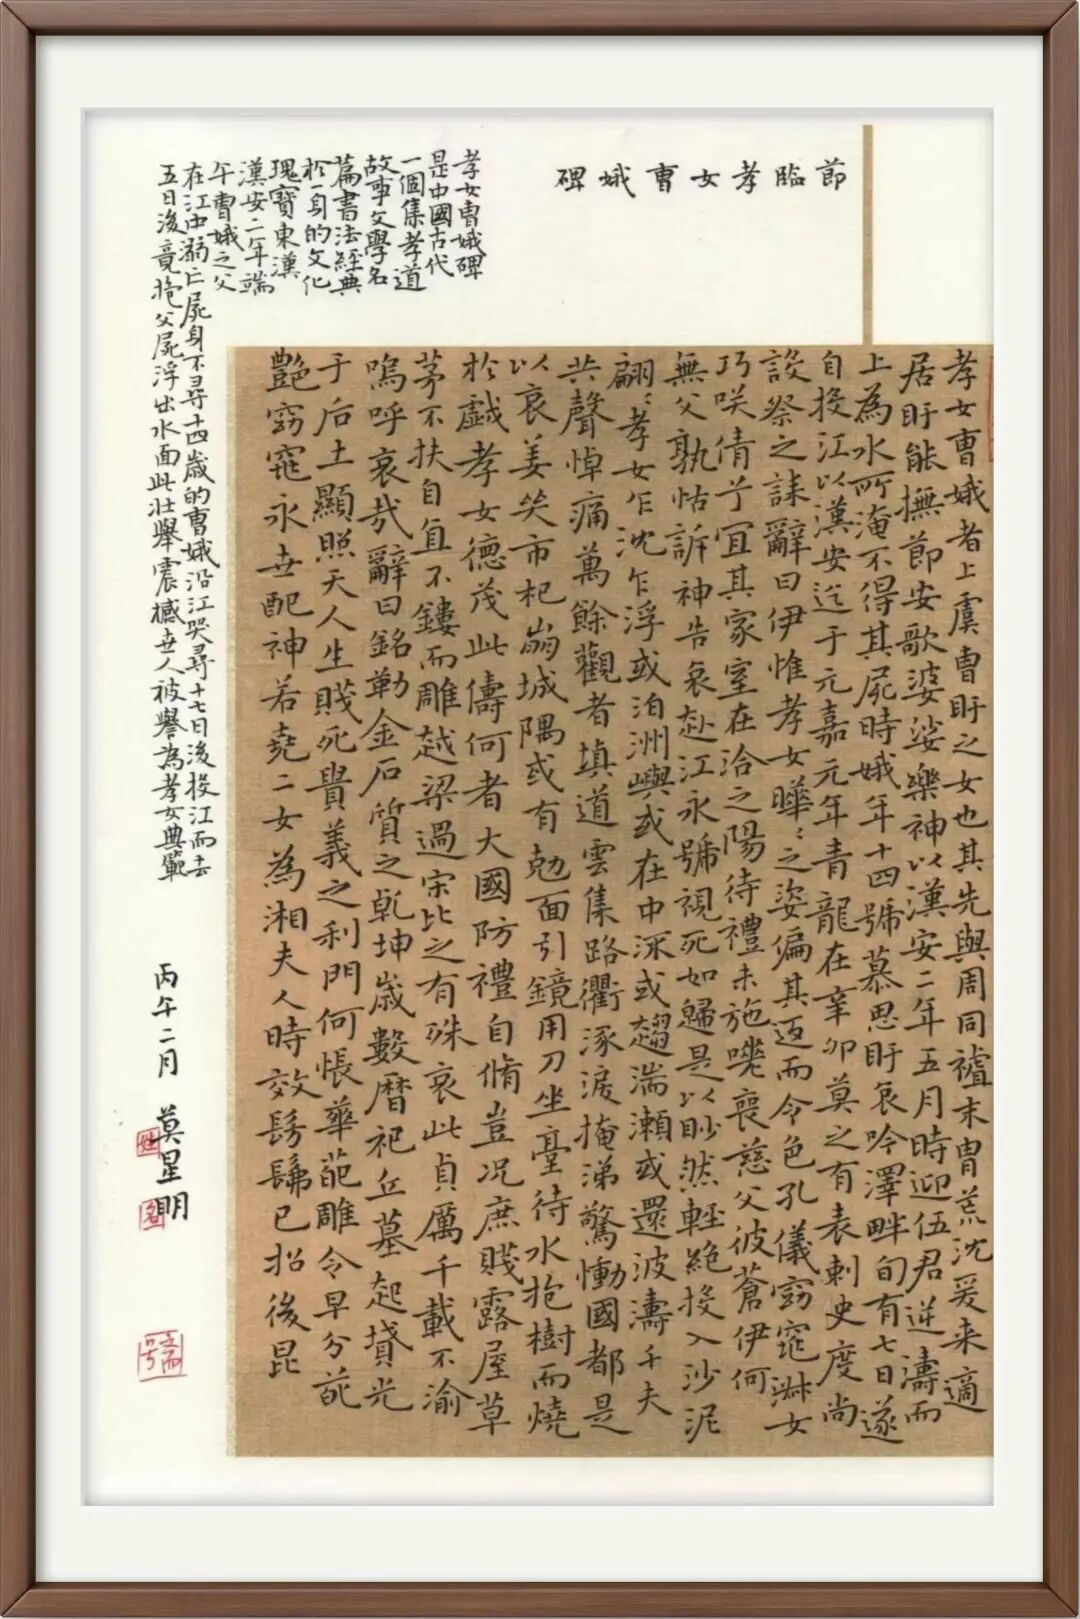 節臨孝女曹娥碑
孝女曹娥者上虞曹盱之女也其先與周同祖末胄荒沈爰来適
居盱能撫節安歌婆娑樂神以漢安二年五月時迎伍君逆濤而
上為水所淹不得其屍時娥年十四號慕思盱哀吟澤畔旬有七日遂
自投江以漢安迄于元嘉元年青龍在辛卯莫之有表刺史度尚
設祭之誄辭曰伊惟孝女曄〻之姿偏其返而令色孔儀窈窕淑女
巧咲倩兮宜其家室在洽之陽待禮未施嗟喪慈父彼蒼伊何
無父孰怙訴神告哀赴江永號視死如歸是以眇然輕絶投入沙泥
翩〻孝女乍沈乍浮或泊洲嶼或在中流或趨湍瀬或還波濤千夫
共聲悼痛萬餘觀者填道雲集路衢流淚掩涕驚慟國都是
以哀姜哭市杞崩城隅或有勊面引鏡用刀坐臺待水抱樹而燒
於戯孝女德茂此儔何者大國防禮自脩豈况庶賤露屋草
茅不扶自直不鏤而雕越梁過宋比之有殊哀此貞厲千載不渝
嗚呼哀哉辭曰銘勒金石質之乾坤歲數暦祀丘墓起墳光
于后土顯照天人生賤死貴義之利門何悵華葩雕令早分葩
艷窈窕永世配神若堯二女為湘夫人時效髣髴已招後昆
孝女曹娥碑
是中國古代
一個集孝道
故事文學名
篇書法經典
於一身的文化
瑰寶東漢
漢安二年端
午曹娥之父
在江中溺亡屍身不尋十四歲的曹娥沿江哭尋十七日後投江而去
五日後竟抱父屍浮出水面此壮舉震撼世人被譽為孝女典範
丙午二月 莫星明